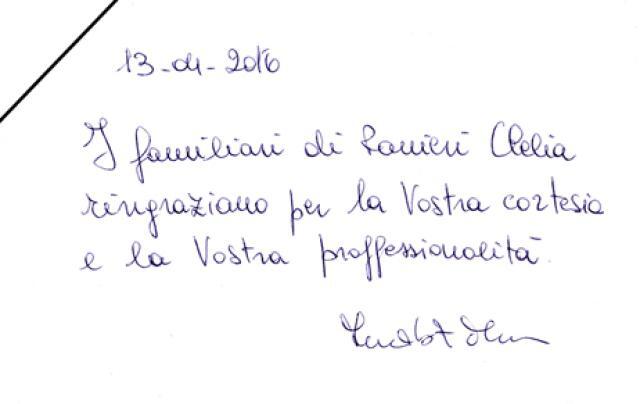 13-04-2016
I familiari di Ranieri Clelia
ringraziano per la Vostra cortesia
e la Vostra proffessionalità